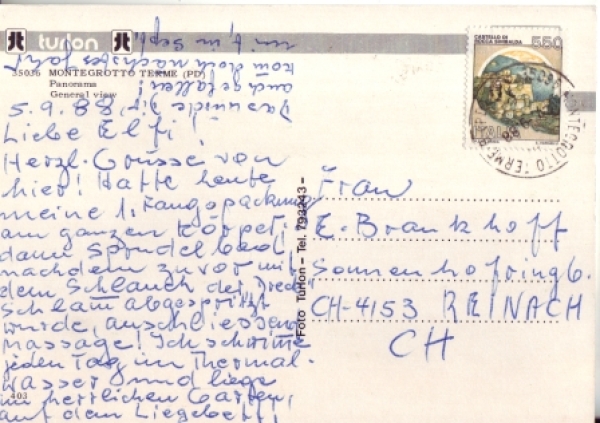 turlon
35036 MONTEGROTTO TERME (PD)
Panorama
General view
CASTELLO DI
ROCCA SINIBALDA
550
MONTEGROTTO TERME
5.9.88
Liebe Elfi!
Herzl. Grüsse von
hier! Hatte heute
meine 1. Fangopackung
am ganzen Körper,
dann Sprudelbad
nachdem zuvor mit
dem Schlauch der Dreck/
Schlam abgespritzt
wurde, anschliessend
Massage! Ich schwimme
jeden Tag im Thermal-
wasser und liege
im herrlichen Garten,
auf dem Liegebett,
Das würde Dir
auch gefallen!
Kom doch nächstes Jahr
mit, im Sept.
403
Foto Turlon – Tel. 793243 –
Frau
E. Brankhoff
Sonnenhofring 6.
CH-4153 REINACH
CH